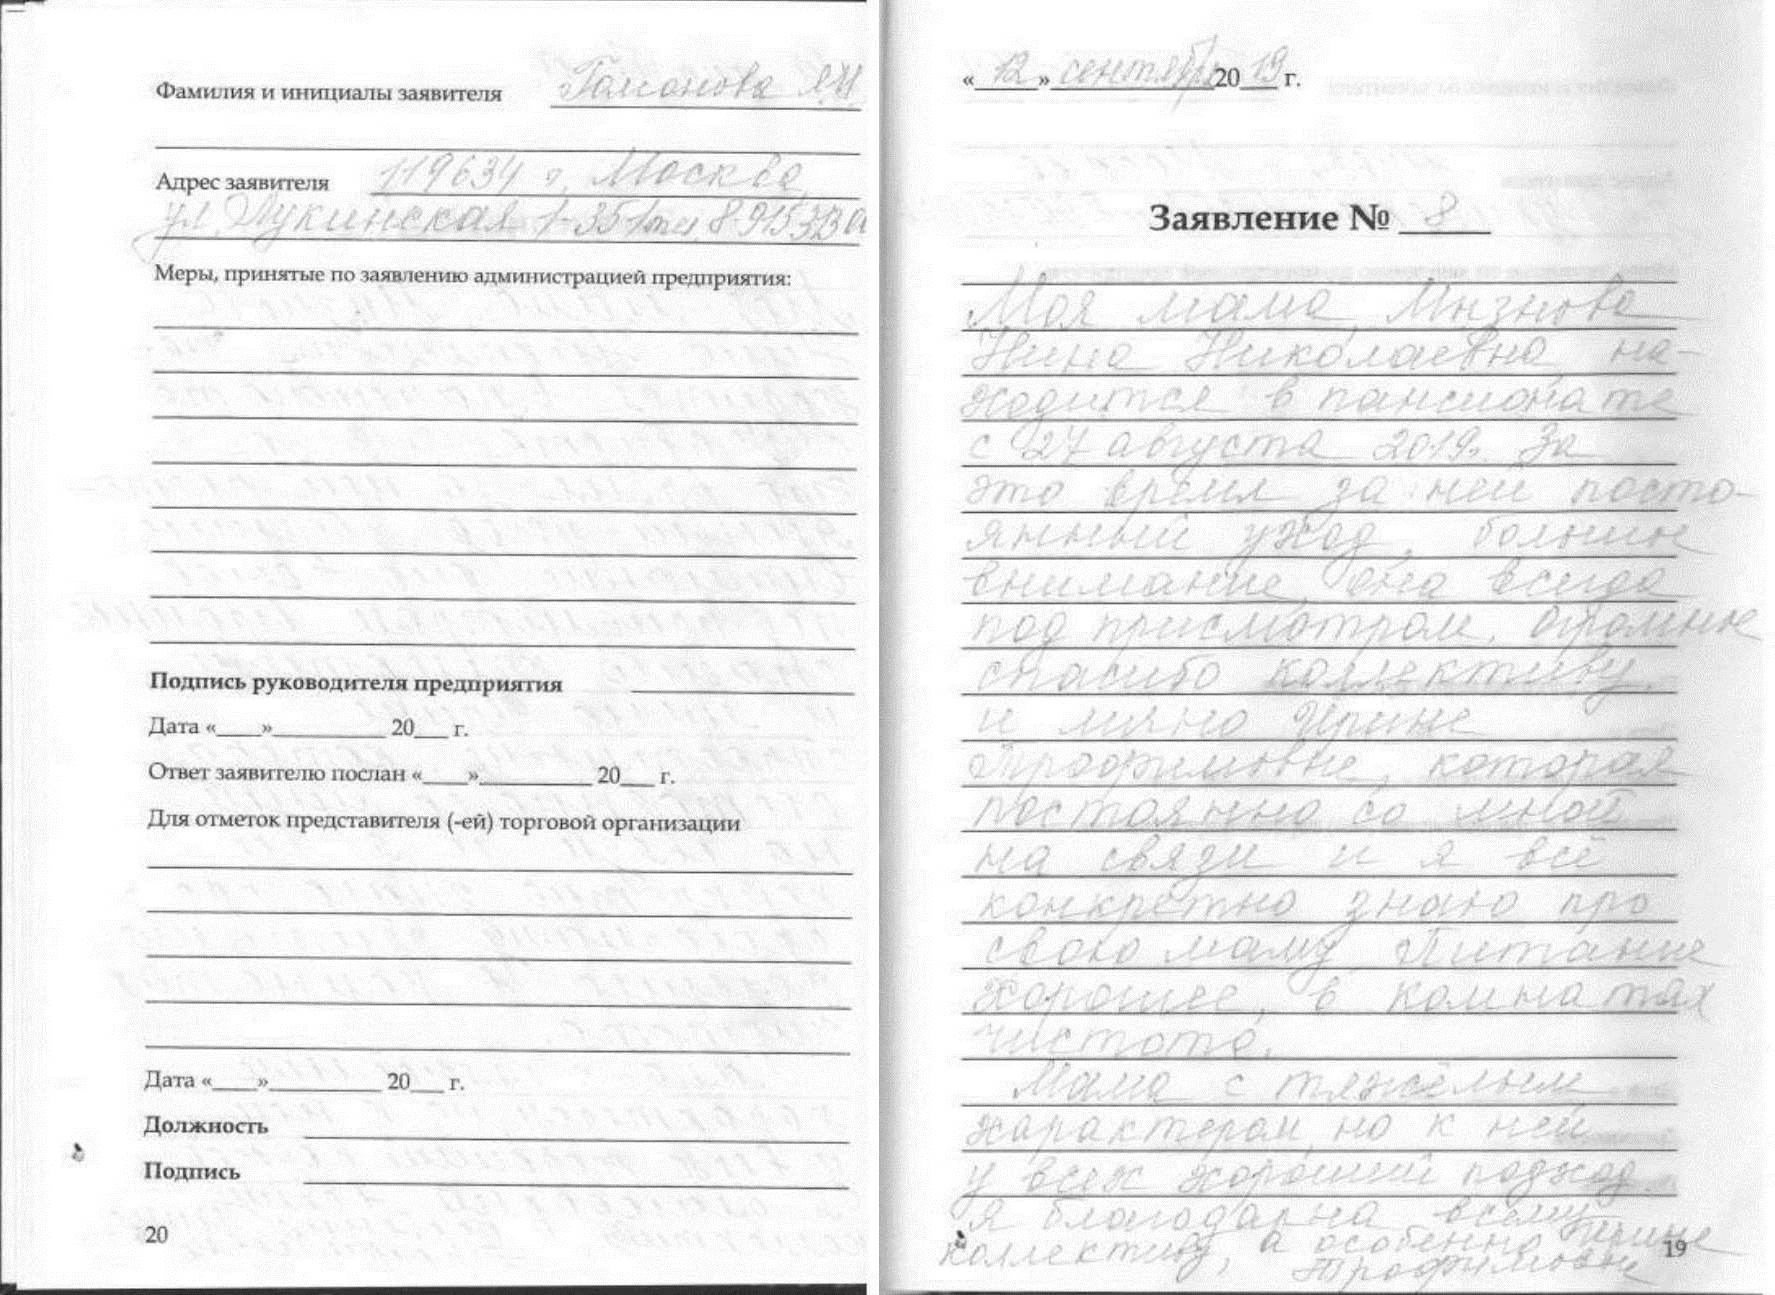 Фамилия и инициалы заявителя Гомонова Л.Н
Адрес заявителя 119634 г. Москва,
ул. Лукинская 1-351 тел. 8-915
Меры, принятые по заявлению администрацией предприятия:
Подпись руководителя предприятия
Дата «____»__________ 20___ г.
Ответ заявителю послан «____»__________ 20___ г.
Для отметок представителя (-ей) торговой организации
Дата «____»__________ 20___ г.
Должность
Подпись
20
«12» сентября 2019 г.
Заявление № 8
Моя мама, Мызнова
Нина Николаевна, на-
ходится в пансионате
с 27 августа 2019г. За
это время за ней посто-
янный уход, большое
внимание, она всегда
под присмотром. Огромное
спасибо коллективу
и лично Ирине
Трофимовне, которая
постоянно со мной
на связи и я всё
конкретно знаю про
свою маму. Питание
хорошее, в комнатах
чистота.
Мама с тяжёлым
характером, но к ней
у всех хороший подход.
Я благодарна всему
коллективу, а особенно Ирине
Трофимовне
19